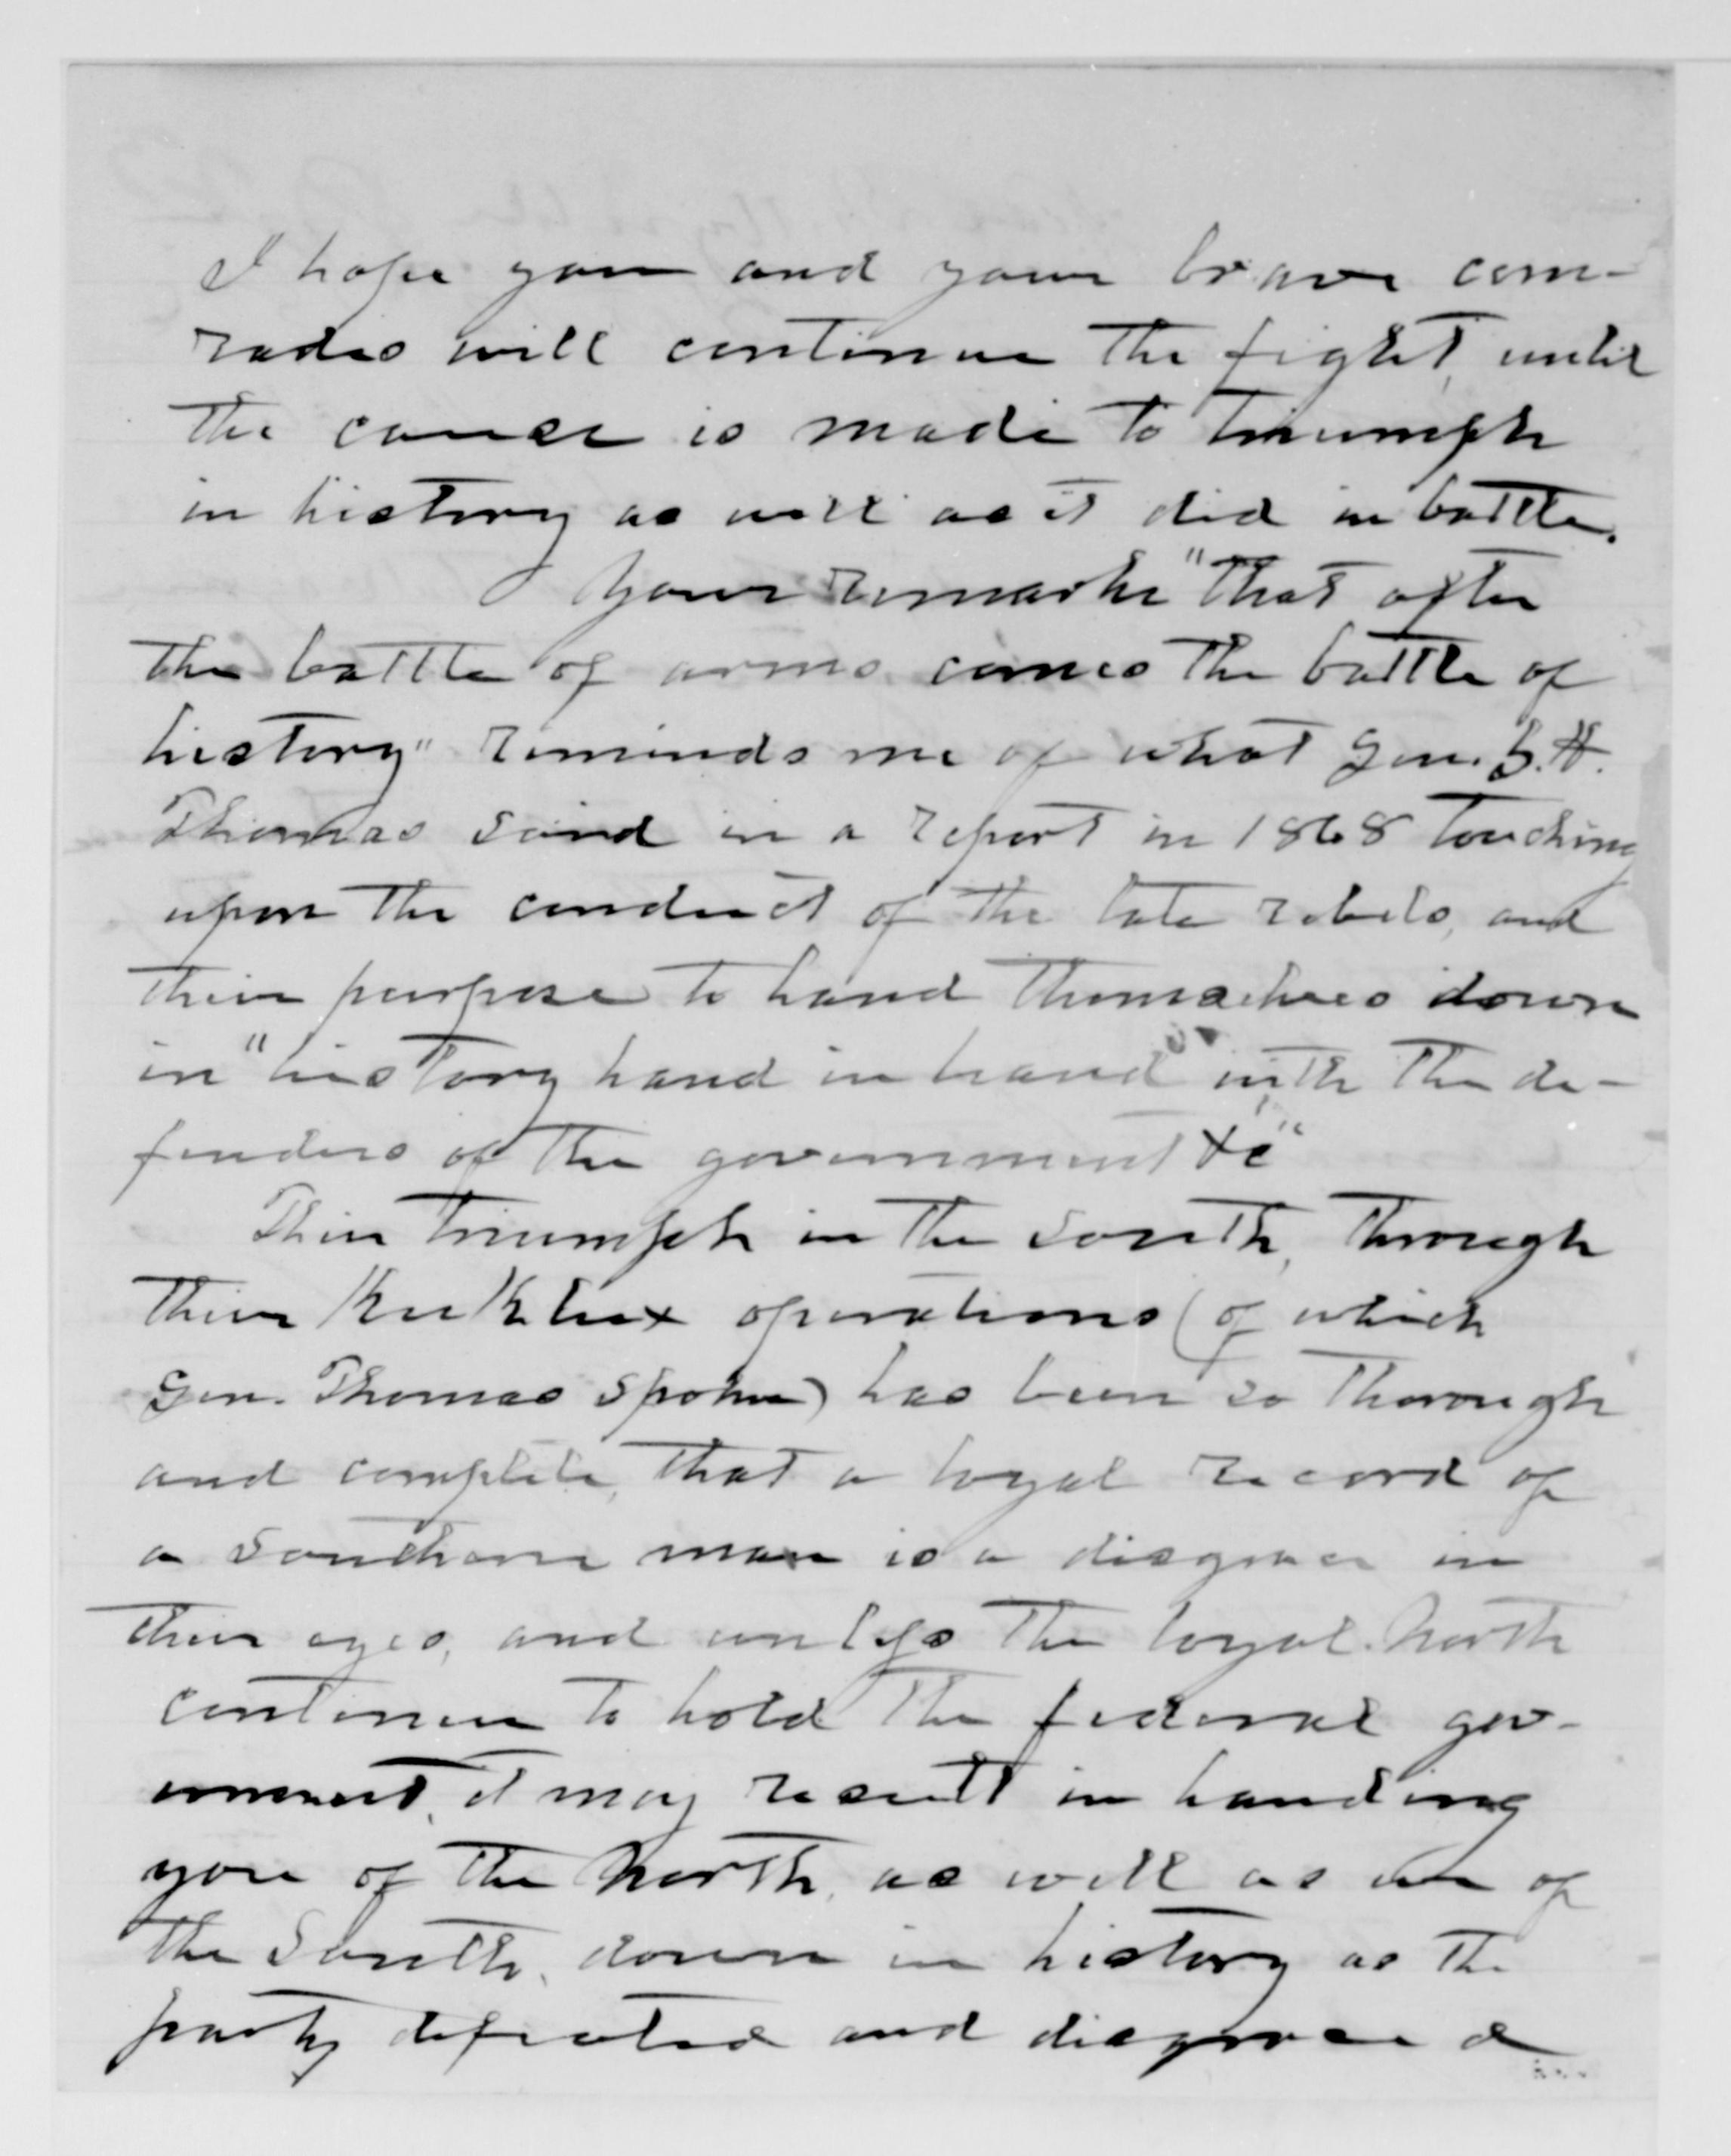 I hope you and your brave com-
rades will continue the fight, until
the cause is made to triumph
in history as well as it did in battle.
Your remarks "that after
the battle of arms comes the battle of
history" reminds me of what Gen. G. H.
Thomas said in a report in 1868 touching
upon the conduct of the late rebels, and
their purpose to hand themselves down
in "history hand in hand with the de-
fenders of the government &c"
Their triumph in the South, through
their Ku Klux operations (of which
Gen. Thomas spoke) has been so thorough
and complete, that a loyal record of
a southern man is a disgrace in
their eyes, and unless the loyal North
continue to hold the federal gov-
ernment, it may result in handing
you of the North, as well as we of
the South, down in history as the
party defeated and disgraced